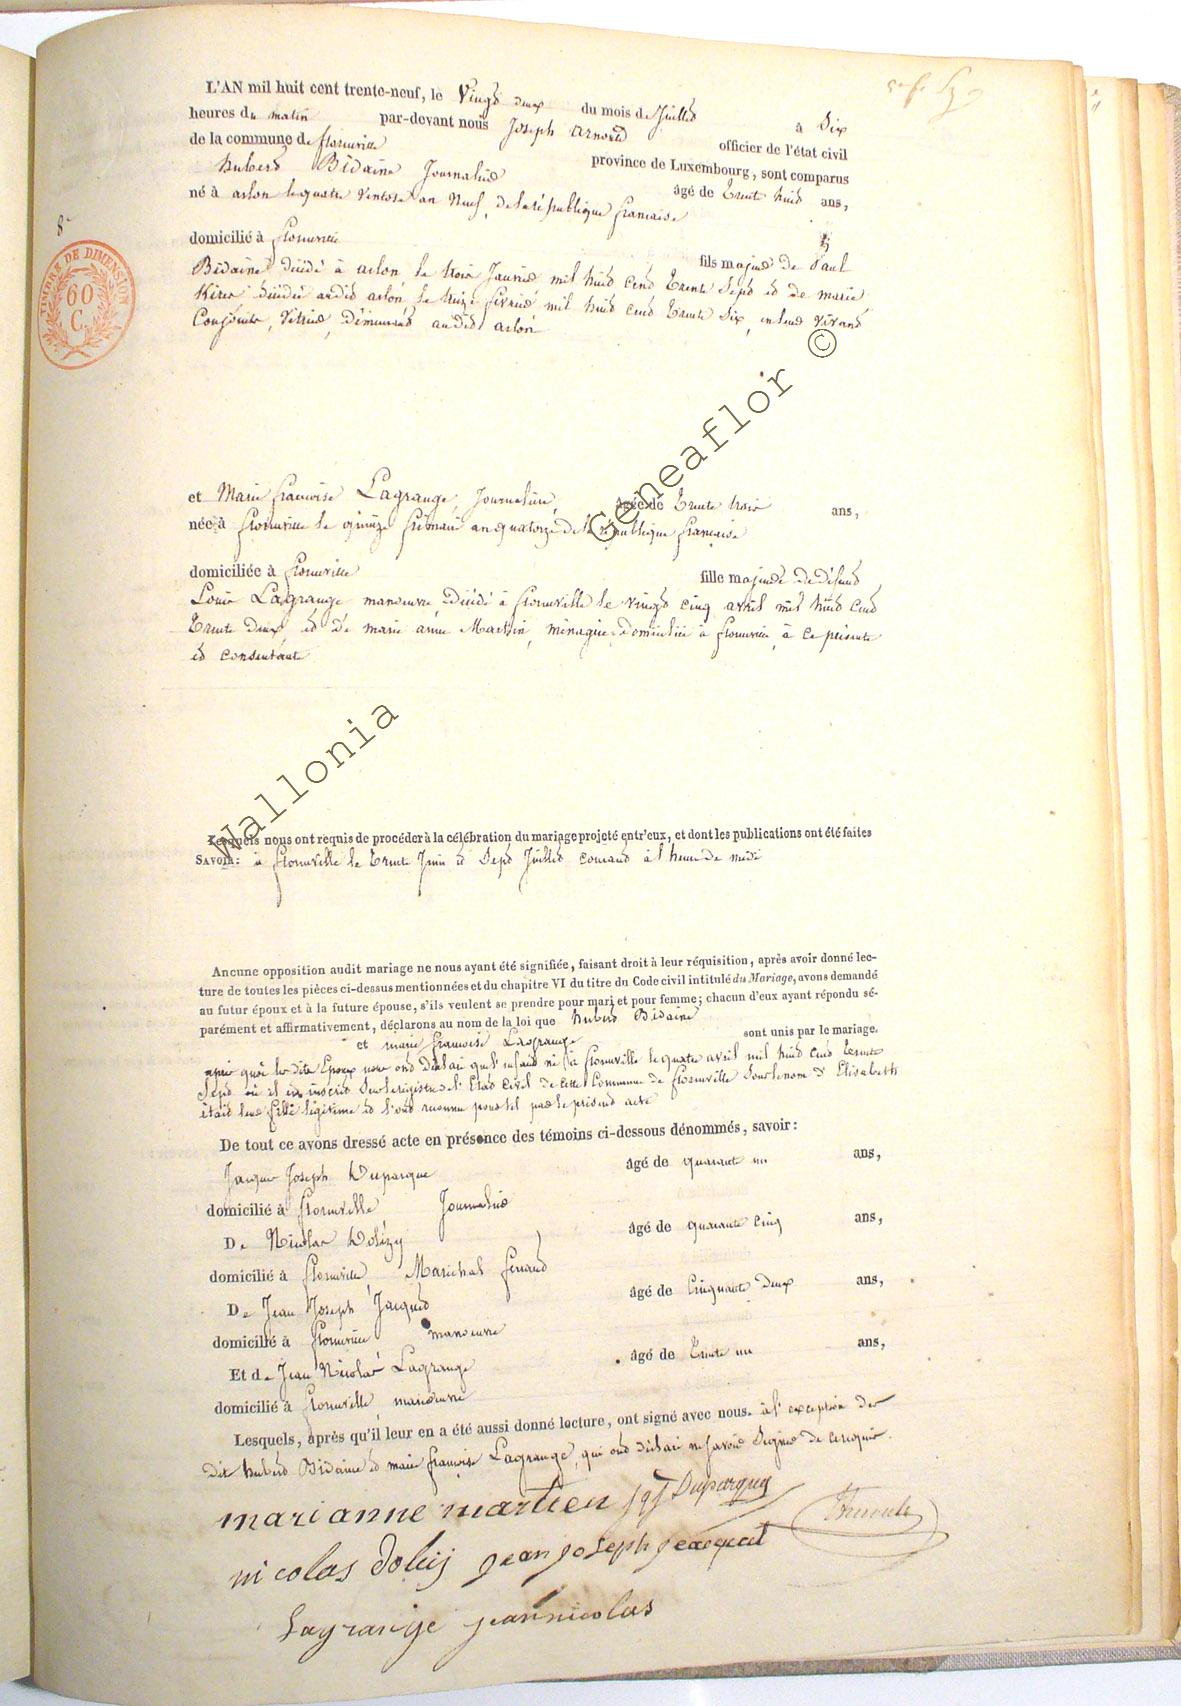 L'AN mil huit cent trente-neuf, le Vingt deux du mois de Juillet à Six
heures du matin par-devant nous Joseph Arnould officier de l'état civil
de la commune de florenville province de Luxembourg, sont comparus
hubert Bidaine Journalier âgé de trente huit ans,
né à arlon le quatre Ventose an Neuf, de la république francaise
8e
domicilié à florenville fils majeur de Paul
Bidaine décédé à arlon le trois Janvier mil huit cent trente Sept et de marie
décédée audit arlon le treize février mil huit cent trente Six, en leur vivant
Conjoints, Vitrier, demeurant audit arlon
TIMBRE DE DIMENSION
60
C.
et Marie francoise Lagrange, Journaliere, âgée de trente trois ans,
née à florenville le quinze frimaire an quatorze de la république francaise
domiciliée à florenville fille majeure de défunt
Louis Lagrange manoeuvre décédé à florenville le vingt cinq avril mil huit cent
trente deux, et de marie anne Martin, ménagère, domiciliée à florenville, à ce présente
et consentante
Lesquels nous ont requis de procéder à la célébration du mariage projeté entr'eux, et dont les publications ont été faites
SAVOIR: à florenville le trente Juin et Sept Juillet courant à l'heure de midi
Ancune opposition audit mariage ne nous ayant été signifiée, faisant droit à leur réquisition, après avoir donné lec-
ture de toutes les pièces ci-dessus mentionnées et du chapitre VI du titre du Code civil intitulé du Mariage, avons demandé
au futur époux et à la future épouse, s'ils veulent se prendre pour mari et pour femme; chacun d'eux ayant répondu sé-
parément et affirmativement, déclarons au nom de la loi que hubert Bidaine
et marie francoise Lagrange sont unis par le mariage.
après quoi les dits Epoux nous ont déclaré qu'l'enfant né à florenville le quatre avril mil huit cent trente
Sept où il est inscrit Sur le registre de l'Etat Civil de cette Commune de florenville Sous le nom d'Elisabeth
était leur fille légitime et l'ont reconnu pour tel par le présent acte
De tout ce avons dressé acte en présence des témoins ci-dessous dénommés, savoir:
Jacques Joseph Duparque âgé de quarante un ans,
domicilié à florenville Journalier
De Nicolas Dolizy âgé de quarante cinq ans,
domicilié à florenville, Maréchal ferrand
De Jean Joseph Jacquet âgé de Cinquante Deux ans,
domicilié à florenville manoeuvre
Et de Jean Nicolas Lagrange âgé de trente un ans,
domicilié à florenville manoeuvre
Lesquels, après qu'il leur en a été aussi donné lecture, ont signé avec nous à l'exception des
dit hubert Bidaine et marie francoise Lagrange, qui ont déclaré ne savoir Signer de ce requis.
marianne martien JqJ Duparque
nicolas Doliij jean joseph jeacquet
Lagrange jean nicolas
Wallonia Geneaflor ©